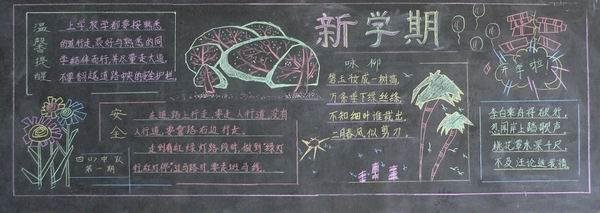 温馨提醒
上学放学都要按熟悉
的道行走,最好与熟悉的同
学结伴而行,并尽量走大道,
不要斜越道路中央的安全护栏。
新学期
开学啦
咏柳
碧玉妆成一树高
万条垂下绿丝绦
不知细叶谁裁出
二月春风似剪刀。
安全
在道路上行走,要走人行道,没有
人行道,要靠路右边行走。
走到有红绿灯路段时,做到"绿灯
行红灯停"过马路时,要走斑马线。
四(1)中队
第一期
李白乘舟将欲行,
忽闻岸上踏歌声。
桃花潭水深千尺,
不及汪伦送我情。